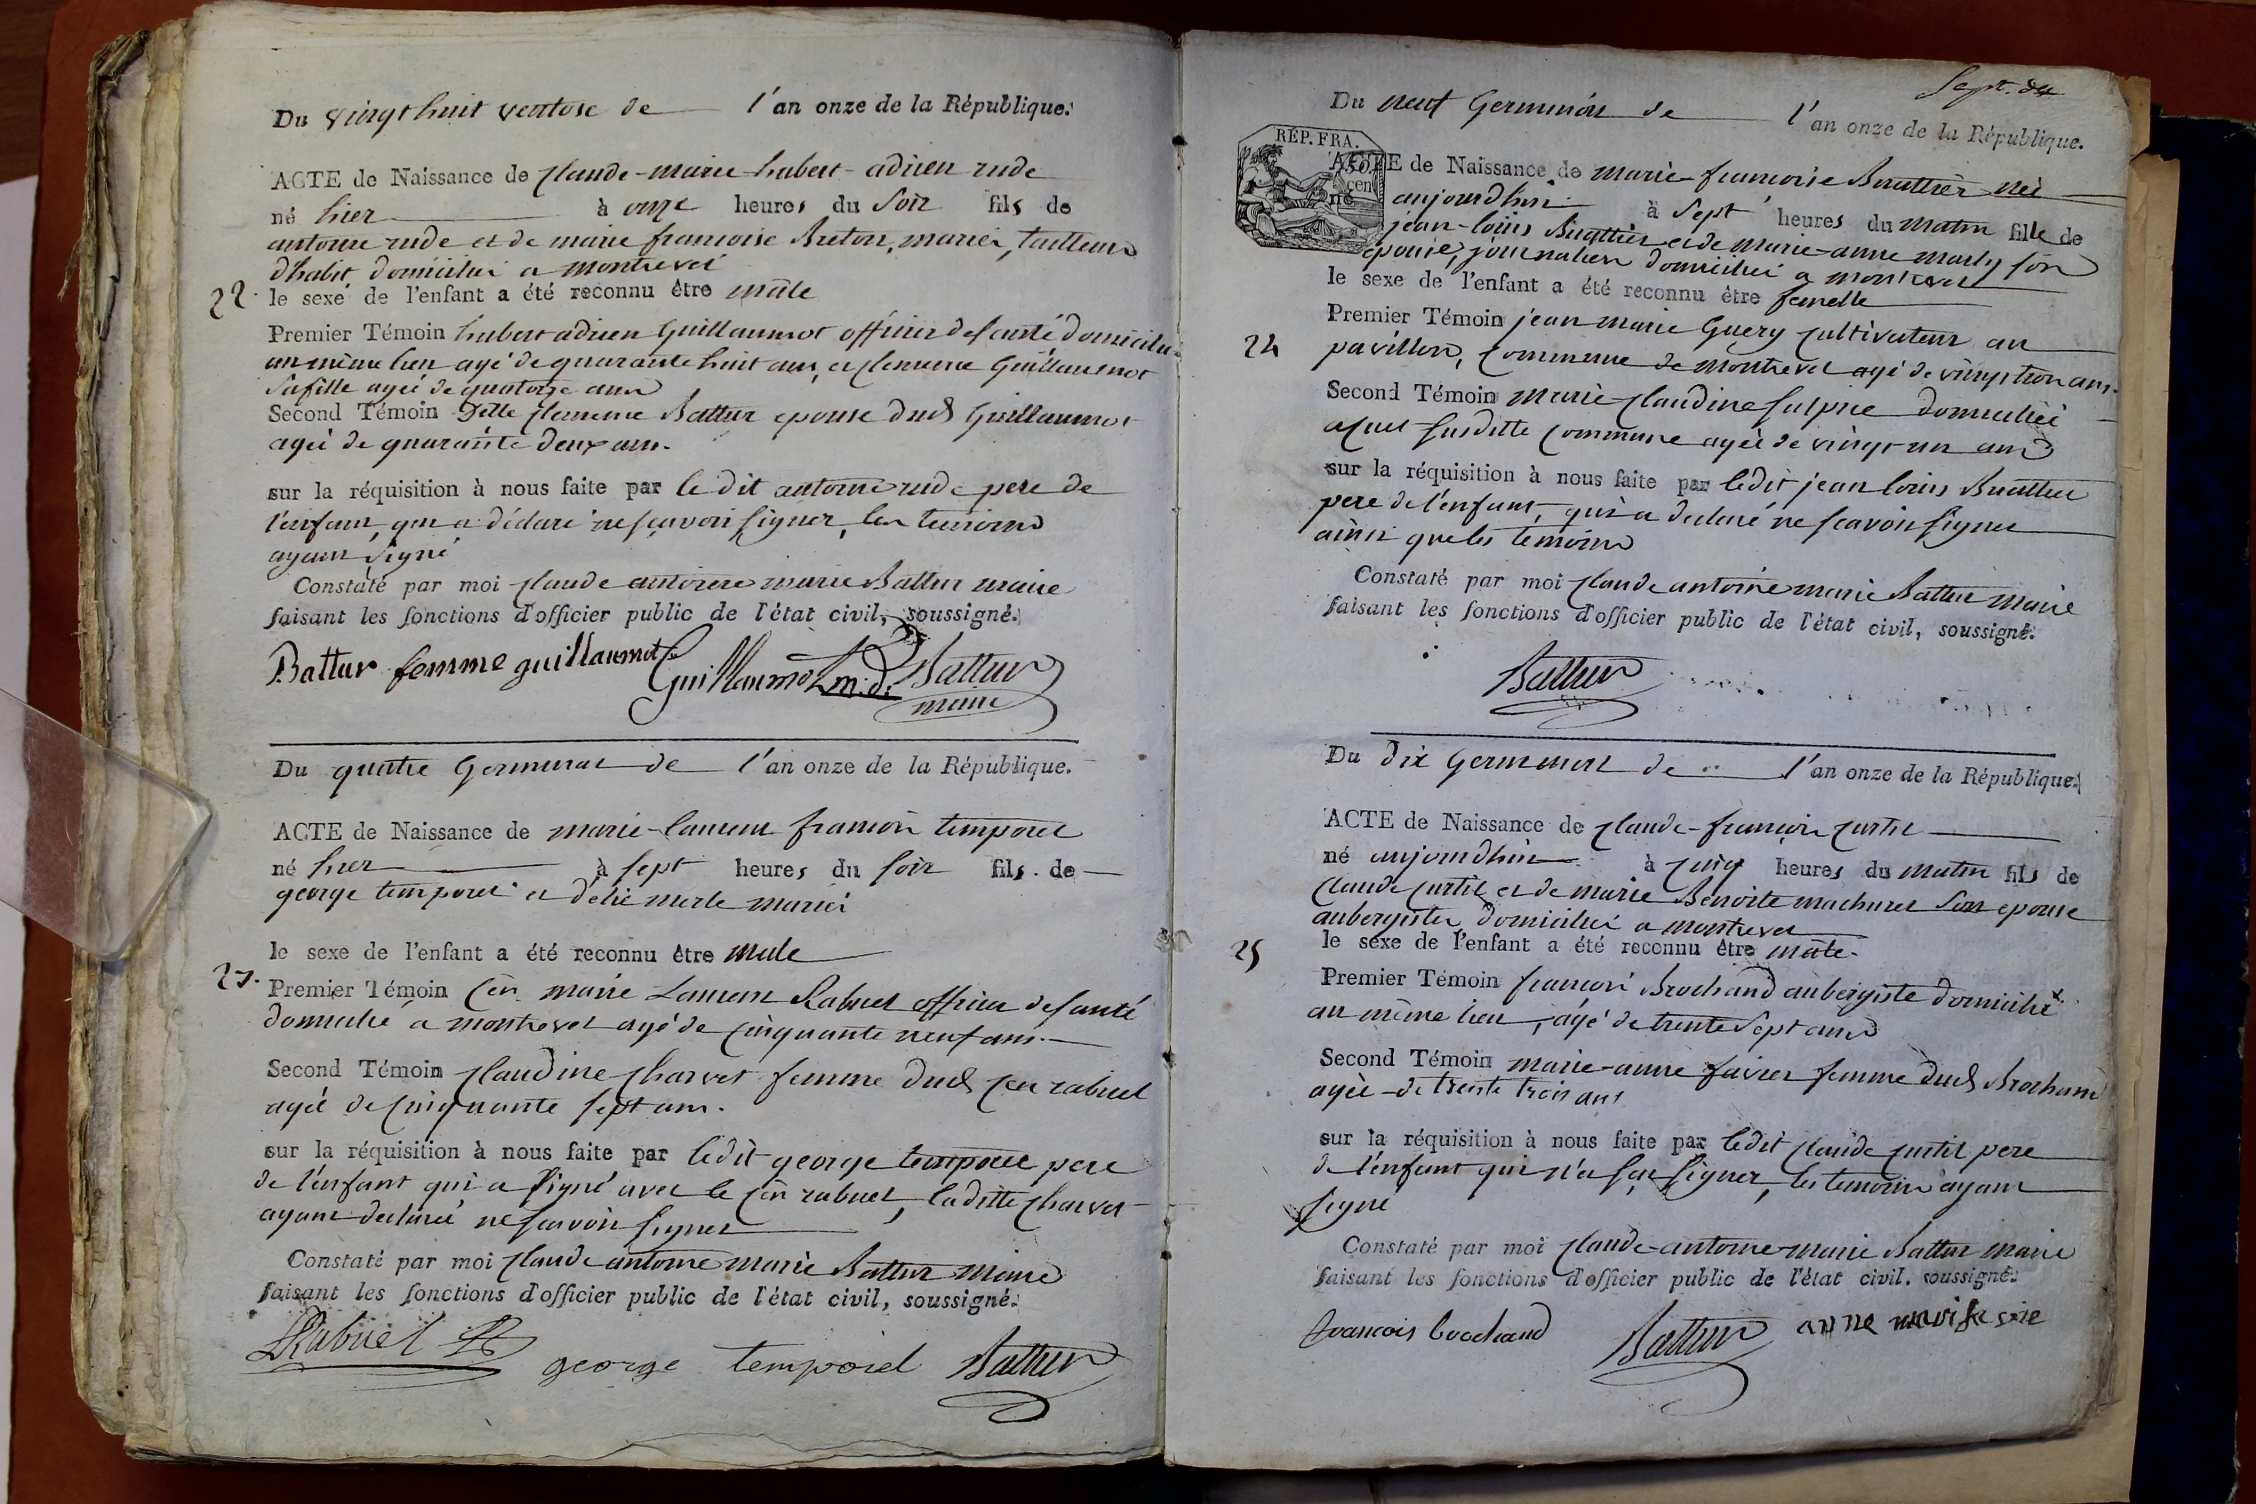 Du vingt huit ventose de l'an onze de la République.
ACTE de Naissance de Claude-marie hubert-adrien rude
né hier à onze heures du Soir fils de
antoine rude et de marie francoise Breton, mariés, tailleur
d'habit domiciliés a montrevel
22. le sexe de l'enfant a été reconnu être mâle
Premier Témoin hubert adrien Guillaumot officier de santé domicilié
au même lieu agé de quarante huit ans, et Clemence Guillaumot
sa fille agée de quatorze ans
Second Témoin Delle Clemence Battur epouse dud Guillaumot
agée de quarante deux ans.
sur la réquisition à nous faite par le dit antoine rude pere de
l'enfant, qui a déclaré ne sçavoir signer, les temoins
ayant signé
Constaté par moi Claude antoine marie Battur maire
faisant les fonctions d'officier public de l'état civil, soussigné.
Battur femme guillaumot Guillaumot m.d. Battur
maire
Du quatre Germinal de l'an onze de la République.
ACTE de Naissance de marie-laurent françois temporel
né hier à sept heures du soir fils de
george temporel et d'élié merle mariés
le sexe de l'enfant a été reconnu être male
23. Premier Témoin Cen marie Laurent Rabuel officier de santé
domicilié a montrevel agé de cinquante neuf ans.
Second Témoin Claudine Charvet femme dud Cen rabuel
agée de cinquante sept ans.
sur la réquisition à nous faite par ledit george temporel pere
de l'enfant qui a signé avec le Cen rabuel, laditte Charvet
ayant declaré ne scavoir signer
Constaté par moi Claude antoine marie Battur Maire
faisant les fonctions d'officier public de l'état civil, soussigné.
Rabuel
george temporel Battur
Sept.
Du neuf Germinal de l'an onze de la République.
RÉP. FRA.
50
cen
ACTE de Naissance de marie-francoise Buattier née
né aujourdhui à Sept heures du matin fille de
jean-louis Buattier et de marie-anne marly son
epouse, journalier domiciliés a montrevel
le sexe de l'enfant a été reconnu être femelle
Premier Témoin jean marie Guery cultivateur au
24 pavillon, commune de montrevel agé de vingt trois ans.
Second Témoin marie-Claudine sulpice domiciliée
a sus ditte commune agée de vingt un ans
sur la réquisition à nous faite par ledit jean louis Buattier
pere de l'enfant, qui a declaré ne scavoir signer
ainsi que les temoins
Constaté par moi Claude antoine marie Battur Maire
faisant les fonctions d'officier public de l'état civil, soussigné.
Battur
Du Dix Germinal de l'an onze de la République.
ACTE de Naissance de Claude-françois Curtil
né aujourdhui à cinq heures du matin fils de
Claude Curtil et de marie Benoite machuret son epouse
aubergistes domiciliés a montrevel
25 le sexe de l'enfant a été reconnu être mâle.
Premier Témoin francois Brochand aubergiste domicilié
au même lieu, agé de trente sept ans
Second Témoin marie-anne faivre femme dud Brochand
agée de trente trois ans
sur la réquisition à nous faite par ledit Claude Curtil pere
de l'enfant qui n'a sçu signer, les temoins ayant
signé
Constaté par moi Claude-antoine-marie Battur maire
faisant les fonctions d'officier public de l'état civil. soussigné.
francois brochand Battur anne marie